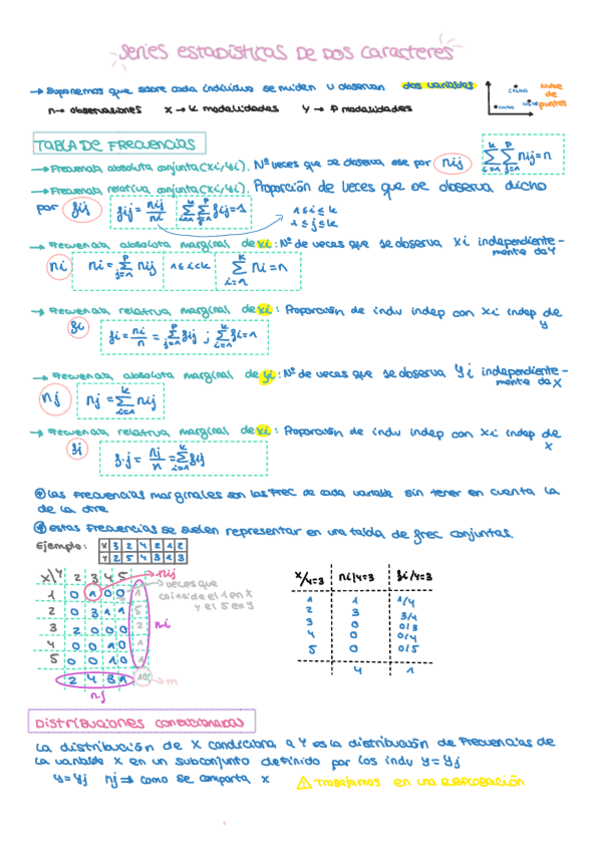 SERIES ESTADÍSTICAS DE DOS CARACTERES
→ Suponemos que sobre cada individuo se miden u observan dos variables
n → observaciones X → K modalidades Y → P modalidades
Nube de puntos
TABLA DE FRECUENCIAS
→ Frecuencia absoluta conjunta (xi, yi). Nº veces que se observa ese par nij
∑ki=1 ∑pj=1 nij = n
→ Frecuencia relativa conjunta (xi, yi). Proporción de veces que se observa dicho
par fij fij = nij/ni ∑ki=1 ∑pj=1 fij = 1
1 ≤ i ≤ k
1 ≤ j ≤ k
→ Frecuencia absoluta marginal de xi: Nº de veces que se observa xi independiente-
mente de Y
ni ni = ∑pj=1 nij 1 ≤ i < k ∑ki=1 ni = n
→ Frecuencia relativa marginal de xi: Proporción de indu indep con xi indep de
y
fi fi = ni/n = ∑pj=1 fij ; ∑ki=1 fi = 1
→ Frecuencia absoluta marginal de yi: Nº de veces que se observa yi independiente-
mente de X
nj nj = ∑ki=1 nij
→ Frecuencia relativa marginal de xi: Proporción de indu indep con xi indep de
x
fj f.j = nj/n = ∑ki=1 fij
las frecuencias marginales son las frec de cada variable sin tener en cuenta la
de la otra
estas frecuencias se suelen representar en una tabla de frec conjuntas.
Ejemplo: X 3 2 4 2 1 2
Y 2 5 4 3 1 3
X\Y 2 3 4 5 nij
1 0 1 0 0 1
veces que
coincide el 1 en X
y el 5 en Y
2 0 3 1 1 5
3 2 0 0 0 2 ni
4 0 0 1 0 1
5 0 0 1 0 1
2 4 3 1 10 → m
nj
X/Y=3 ni/Y=3 fi/Y=3
1 1 1/4
2 3 3/4
3 0 0/3
4 0 0/4
5 0 0/5
4 1
DISTRIBUCIONES CONDICIONADAS
La distribución de X condiciona a Y es la distribución de frecuencias de
la variable X en un subconjunto definido por los indu y = yj
y = yj nj ⇒ como se comporta x
⚠ Trabajamos en una